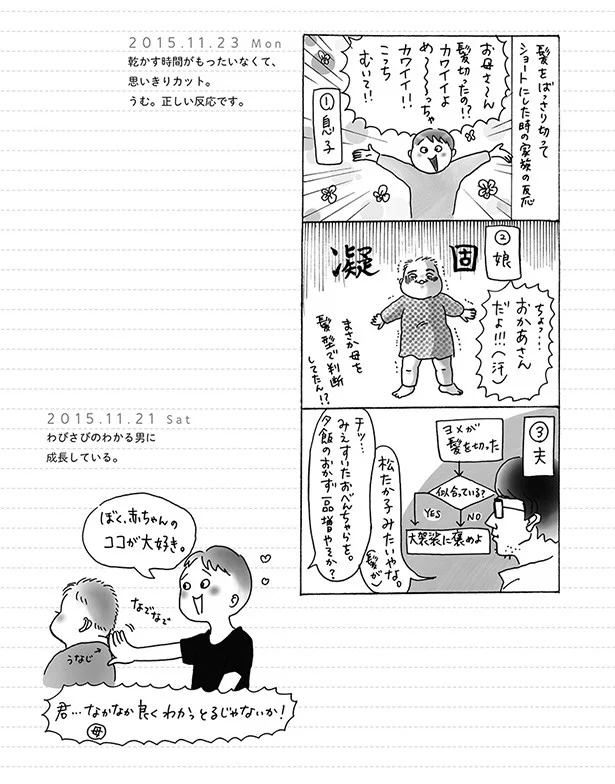 2015.11.23 Mon
乾かす時間がもったいなくて、
思いきりカット。
うむ。正しい反応です。
髪をばっさり切って
ショートにした時の家族の反応
①息子
お母さ〜ん
髪切ったの!?
カワイイよ
め〜〜〜っちゃ
カワイイ!!
こっち
むいて!!
②娘
凝固
ちょっ…
おかあさん
だよ!!!(汗)
まさか母を
髪型で判断
してたん!?
③夫
ヨメが
髪を切った
似合っている?
YES
NO
大袈裟に褒めよ
松たか子みたいやな。
(髪が)
チッ…
みえすいたおべんちゃらを。
夕飯のおかず一品増やそか?
2015.11.21 Sat
わびさびのわかる男に
成長している。
ぼく、赤ちゃんの
ココが大好き。
なでなで
うなじ
君…なかなか良くわかっとるじゃないか!
母